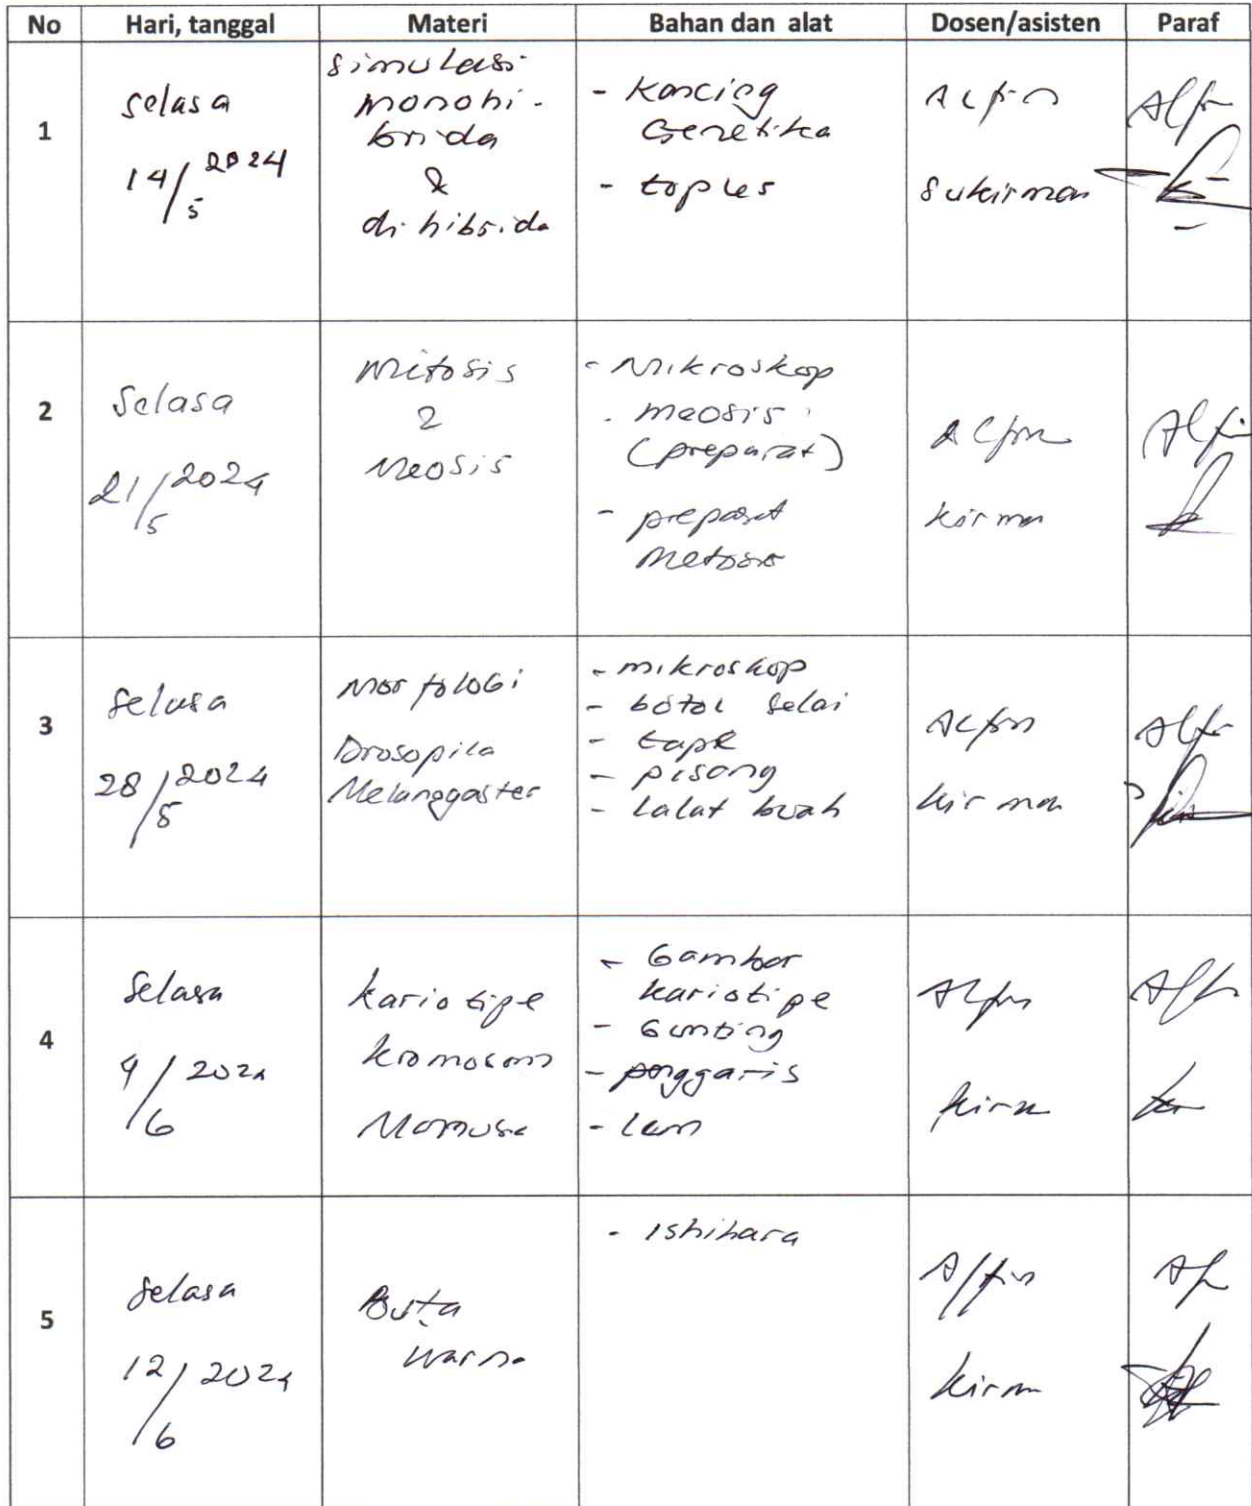 No Hari, tanggal Materi Bahan dan alat Dosen/asisten Paraf
1
Selasa
14/5 2024
Simulasi
monohi-
brida
&
dihibrida
- Kancing
Genetika
- toples
Alfin
Sukirman
2
Selasa
21/5 2024
Mitosis
&
Meosis
- Mikroskop
- meosis
(preparat)
- preparat
Alfin
Kirman
3
Selasa
28/5 2024
Morfologi
Drosopila
Melanggaster
- mikroskop
- botol selai
- tape
- pisang
- lalat buah
Alfin
Kirman
4
Selasa
/6 2024
kariotipe
kromosom
Manusia
- Gambar
kariotipe
- Gunting
- penggaris
- lem
Alfin
5
Selasa
12/6 2024
Buta
warna
- Ishihara
Alfin